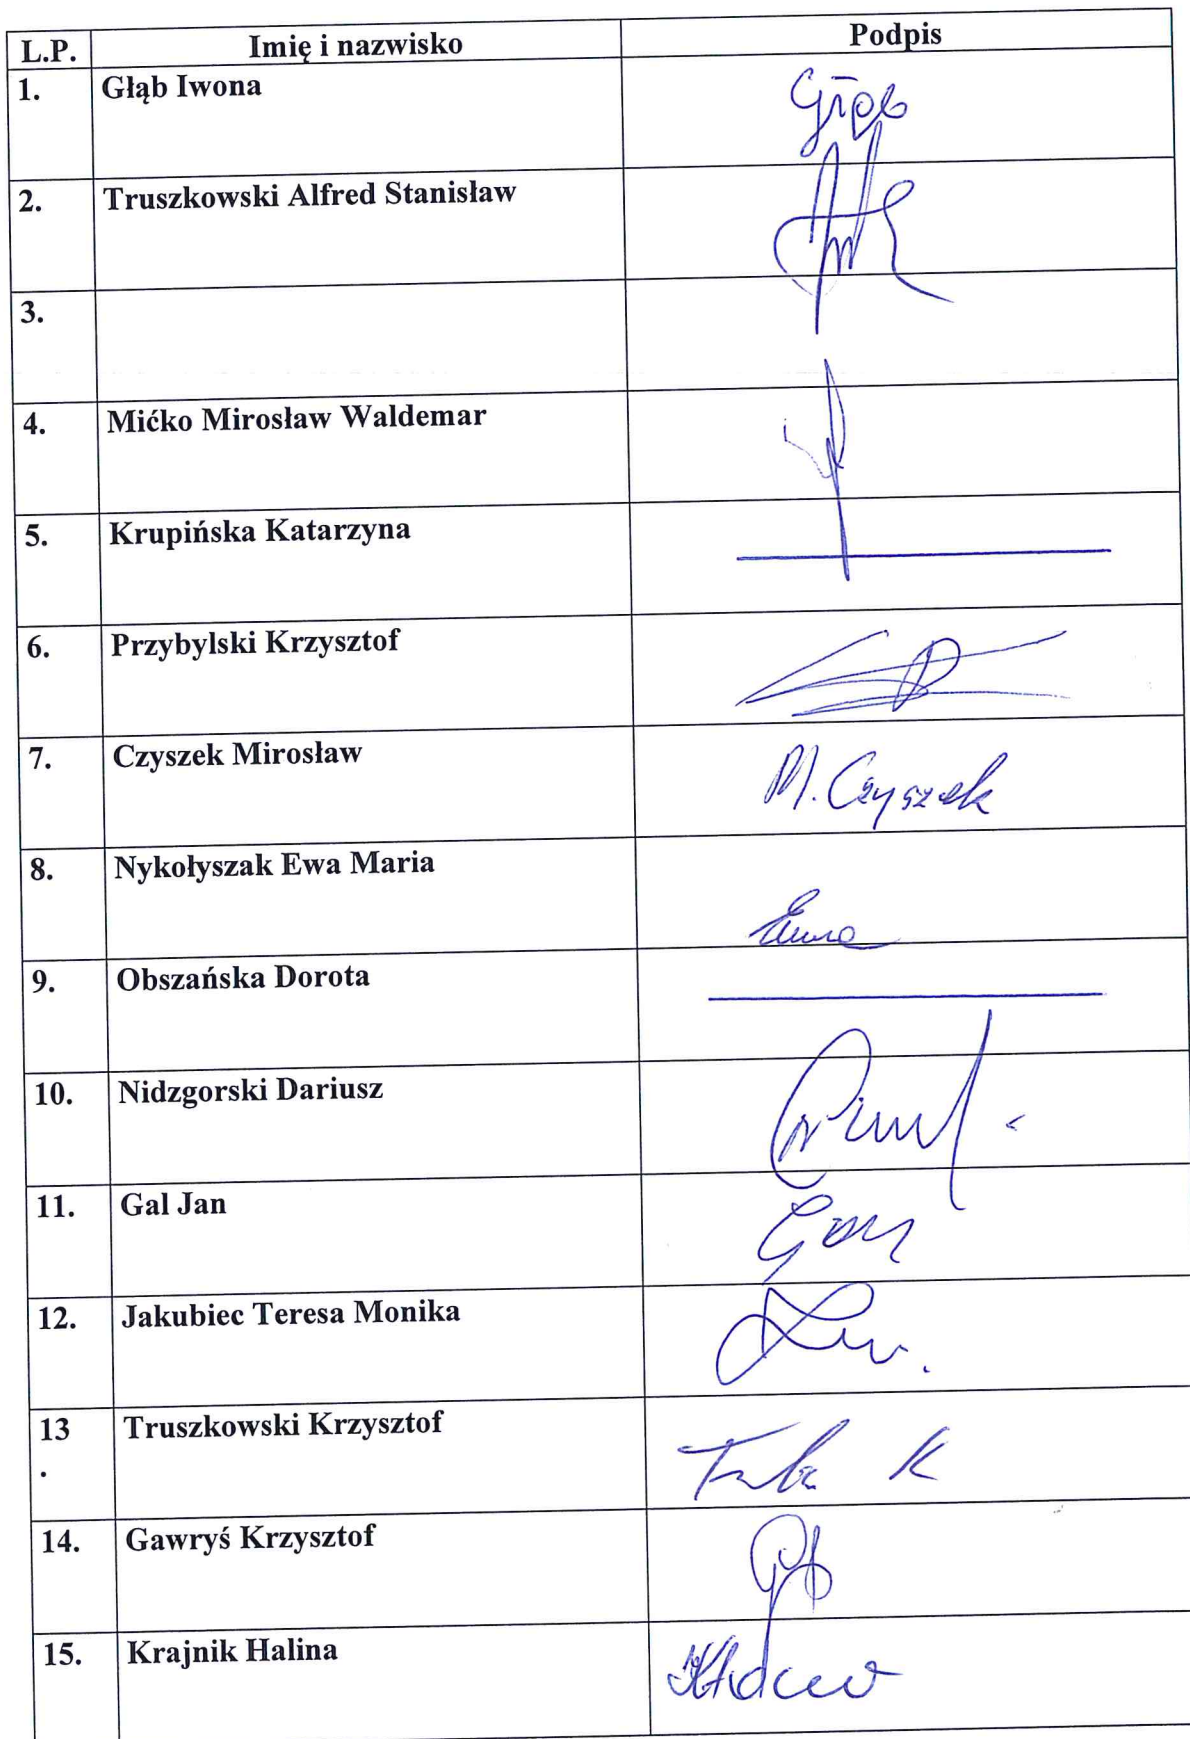 L.P. Imię i nazwisko Podpis
1. Głąb Iwona Głąb
2. Truszkowski Alfred Stanisław
3.
4. Mićko Mirosław Waldemar
5. Krupińska Katarzyna
6. Przybylski Krzysztof
7. Czyszek Mirosław M. Czyszek
8. Nykołyszak Ewa Maria
9. Obszańska Dorota
10. Nidzgorski Dariusz
11. Gal Jan
12. Jakubiec Teresa Monika
13
. Truszkowski Krzysztof
14. Gawryś Krzysztof
15. Krajnik Halina